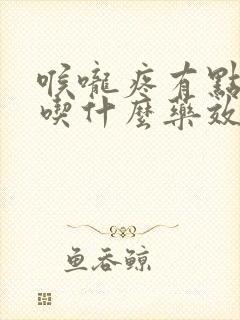 喉嚨疼有點
喫什麼藥效
魚吞鯨